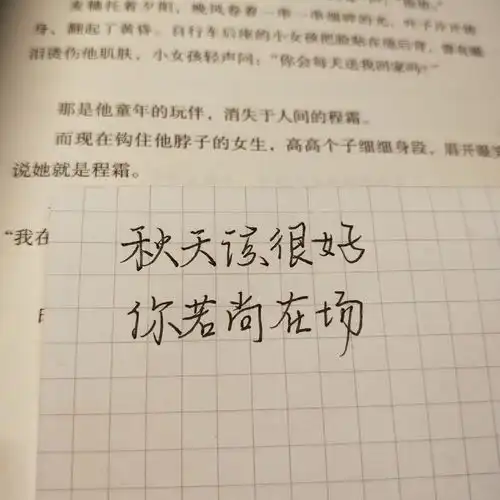 麦穗托着夕阳，晚风卷着一串一串细碎的光，
身，翻起了黄昏。自行车后座的小女孩把脸贴在他后背，
泪烫伤他肌肤，小女孩轻声问：“你会每天送我回家吗？”
那是他童年的玩伴，消失于人间的程霜。
而现在钩住他脖子的女生，高高个子细细身段，眉开眼笑
说她就是程霜。
“我在
秋天该很好
你若尚在场